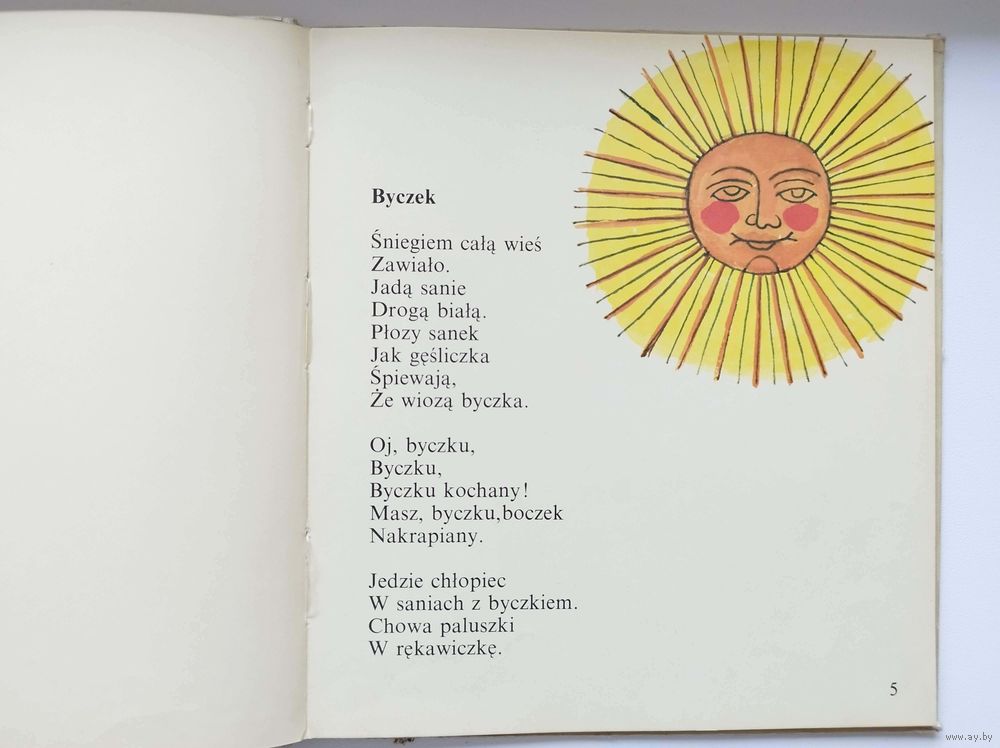 Byczek
Śniegiem całą wieś
Zawiało.
Jadą sanie
Drogą białą.
Płozy sanek
Jak gęśliczka
Śpiewają,
Że wiozą byczka.
Oj, byczku,
Byczku,
Byczku kochany!
Masz, byczku,boczek
Nakrapiany.
Jedzie chłopiec
W saniach z byczkiem.
Chowa paluszki
W rękawiczkę.
5
www.ay.by